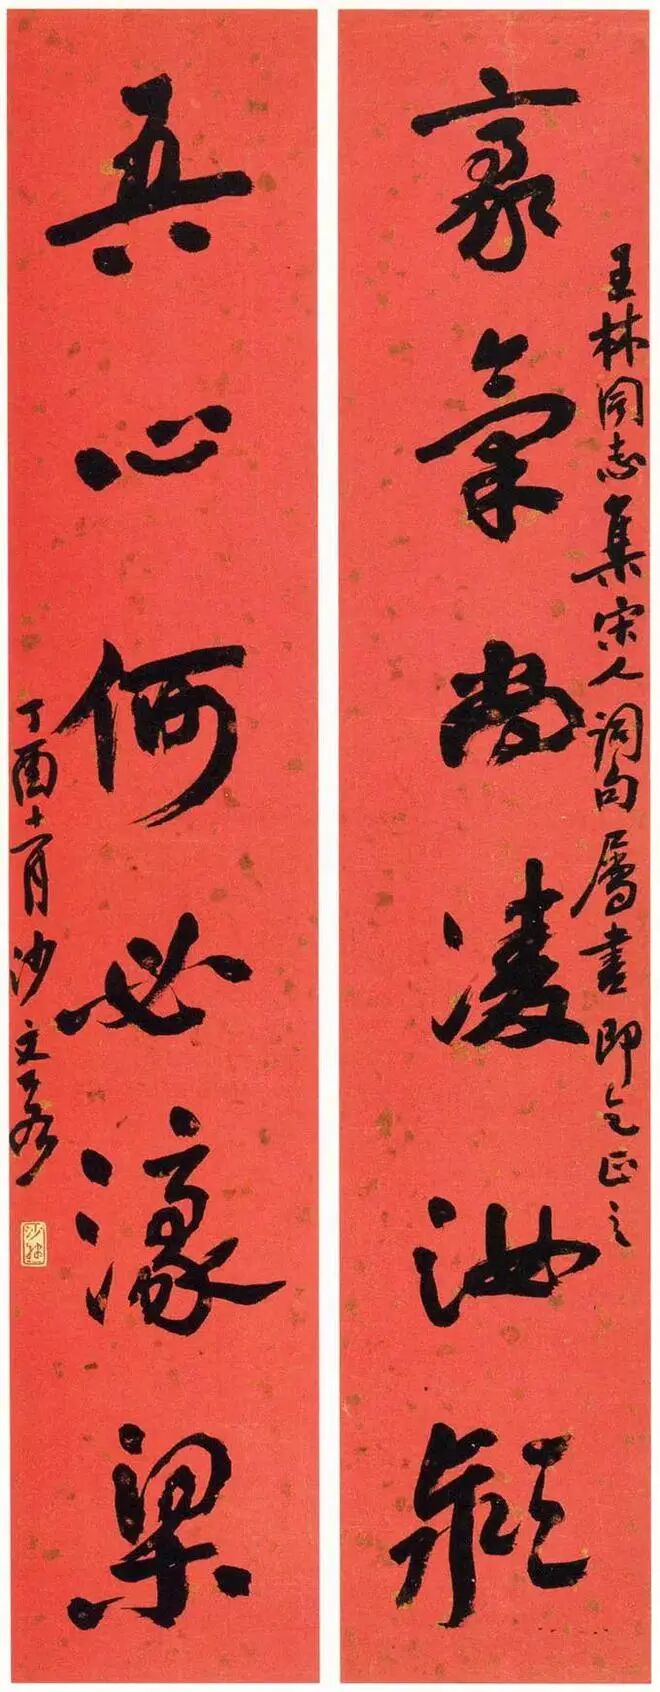 王林同志集宋人詞句屬書即乞正之
豪氣尚凌汝潁
真心何必濠梁
丁酉十一月沙文若
沙邨